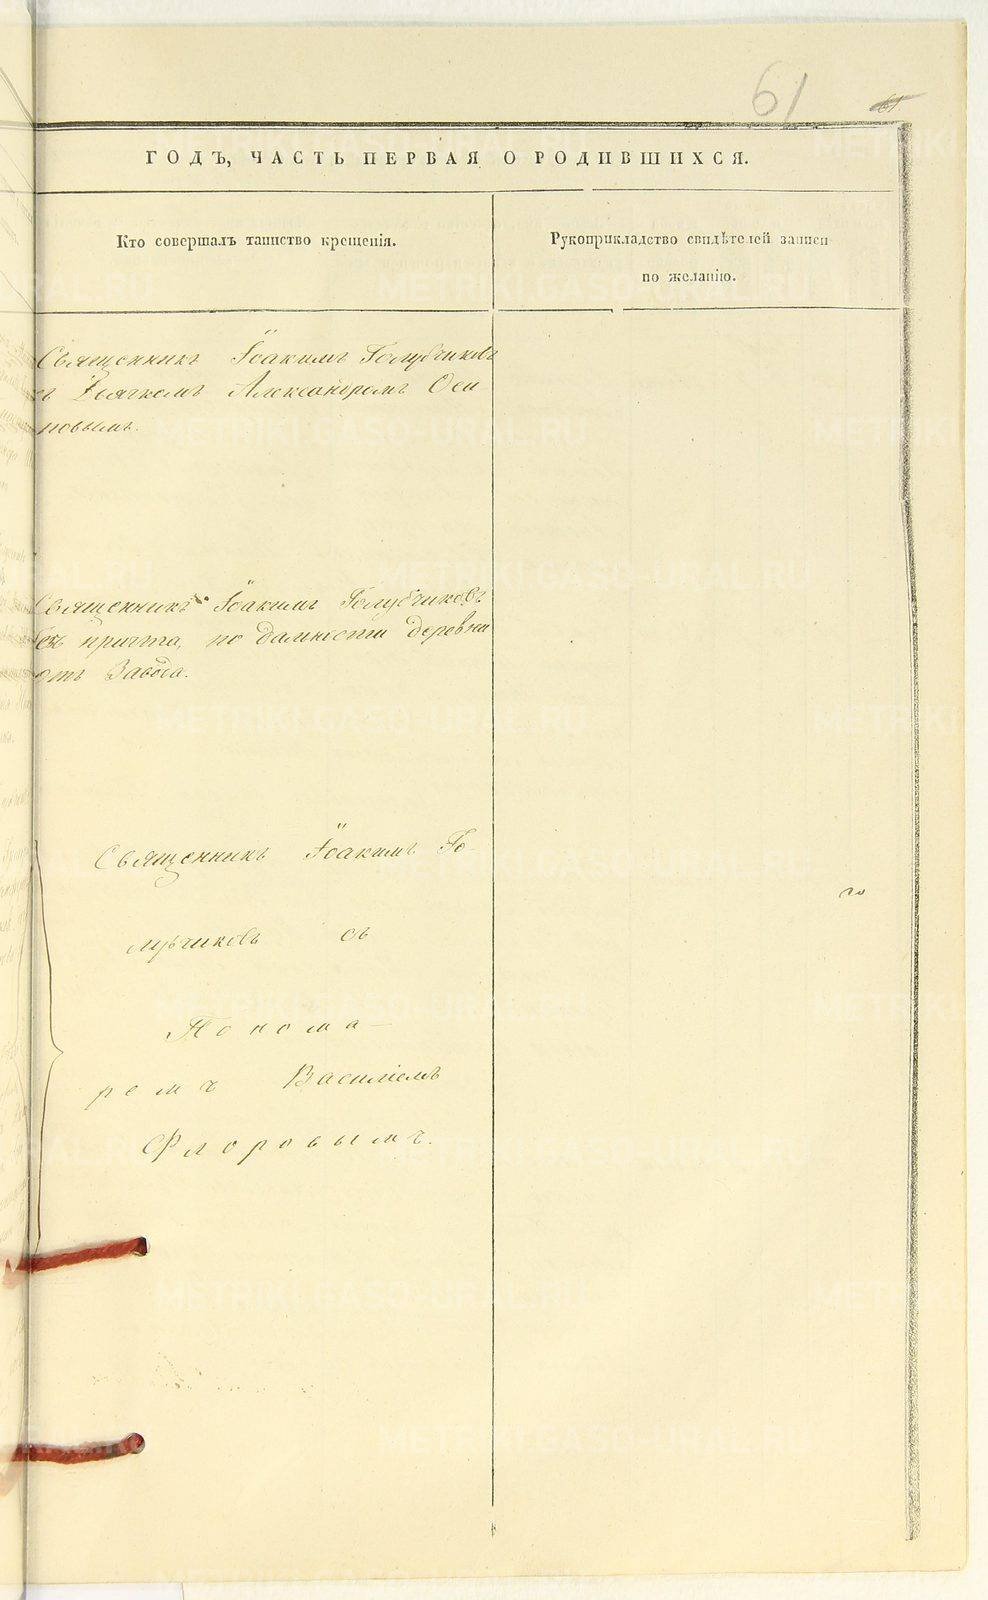 61
61
ГОДЪ, ЧАСТЬ ПЕРВАЯ О РОДИВШИХСЯ.
Кто совершалъ таинство крещенія.
Рукоприкладство свидѣтелей записи
по желанію.
Священникъ Іоакимъ Голубчиковъ
съ Дьячкомъ Александромъ Оси
повымъ.
Священникъ Іоакимъ Голубчиковъ
безъ причта, по дальности деревни
отъ Завода.
Священникъ Іоакимъ Го-
лубчиковъ съ
Понома-
ремъ Василіемъ
Флоровымъ.
METRIKI.GASO-URAL.RU